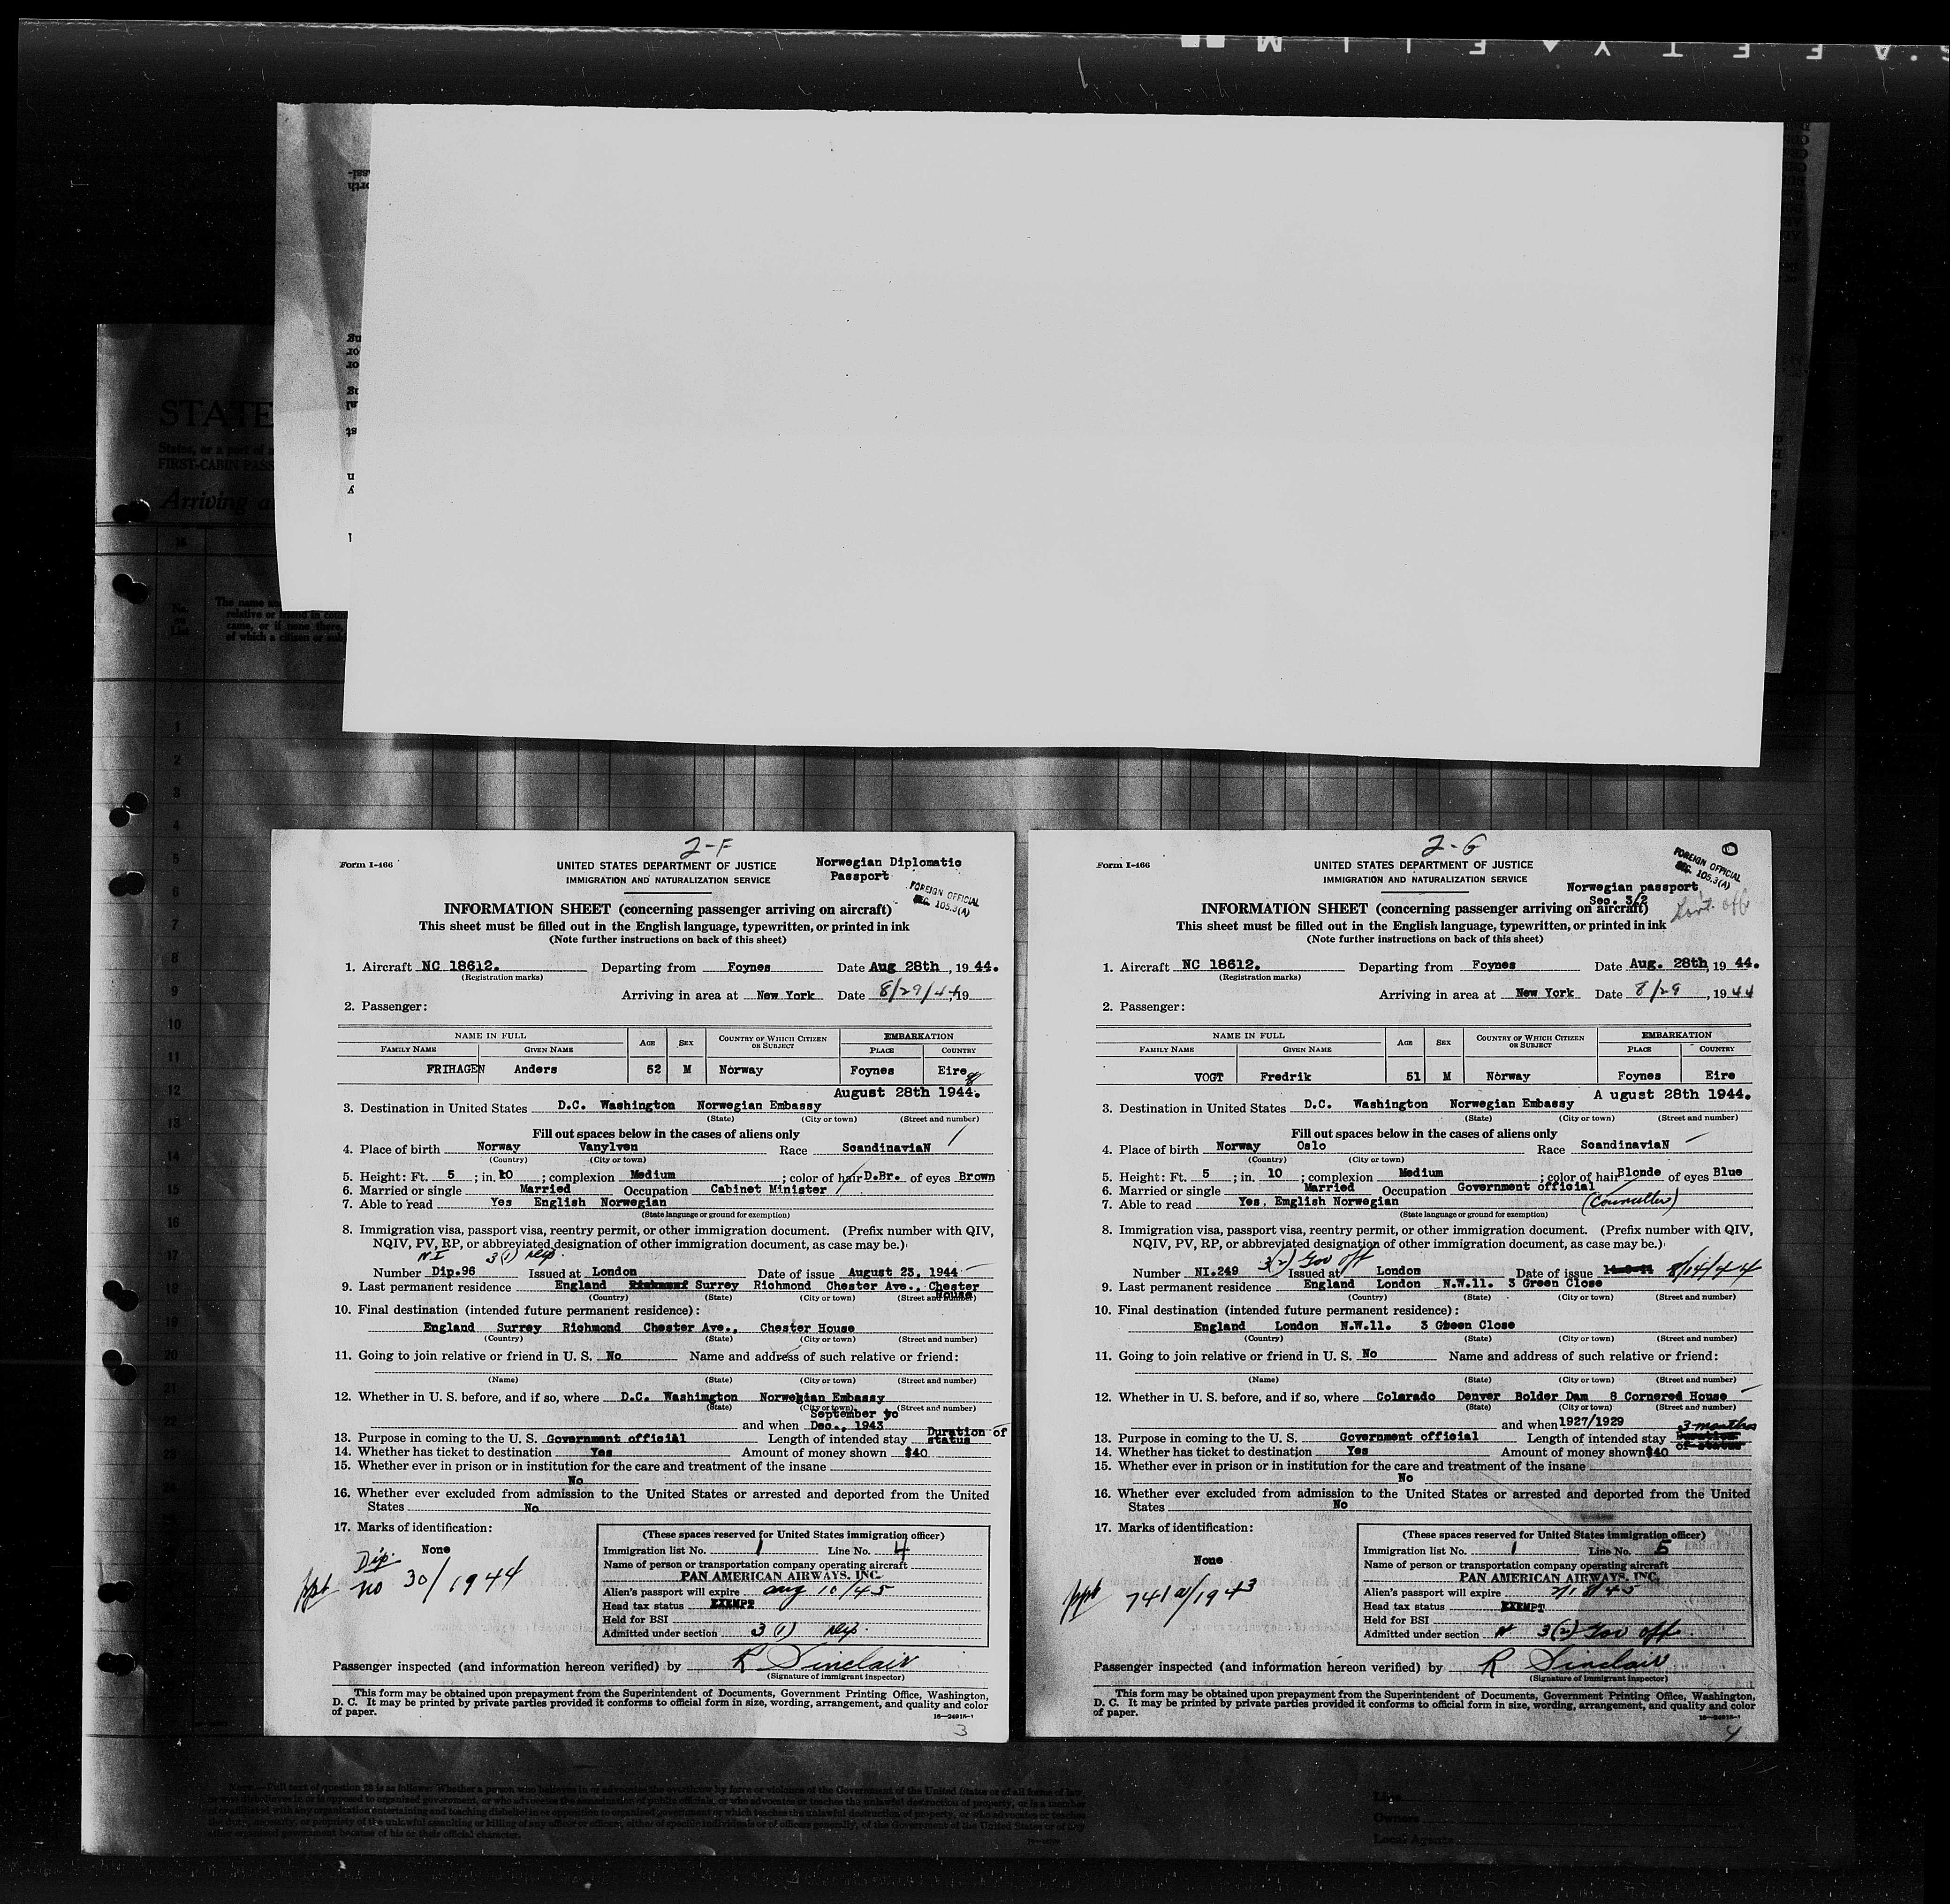 SAFETY FILM
STATE
States, or a part of
FIRST-CABIN PASS
Arriving a
No. on List
The name an
relative or friend in coun
came, or if none there,
of which a citizen or sub
1
2
3
4
5
6
7
8
9
10
11
12
13
14
15
16
17
18
19
20
21
22
23
24
2-F
Form I-466
UNITED STATES DEPARTMENT OF JUSTICE
IMMIGRATION AND NATURALIZATION SERVICE
Norwegian Diplomatic
Passport
FOREIGN OFFICIAL
SEC. 105.3(A)
INFORMATION SHEET (concerning passenger arriving on aircraft)
This sheet must be filled out in the English language, typewritten, or printed in ink
(Note further instructions on back of this sheet)
1. Aircraft NC 18612. Departing from Foynes Date Aug 28th, 19 44.
(Registration marks)
Arriving in area at New York Date 8/29/44, 19
2. Passenger:
NAME IN FULL AGE SEX COUNTRY OF WHICH CITIZEN OR SUBJECT EMBARKATION
FAMILY NAME GIVEN NAME PLACE COUNTRY
FRIHAGEN Anders 52 M Norway Foynes Eire
August 28th 1944.
3. Destination in United States D.C. Washington Norwegian Embassy
(State) (City or town) (Street and number)
Fill out spaces below in the cases of aliens only
4. Place of birth Norway Vanylven Race ScandinaviaN
(Country) (City or town)
5. Height: Ft. 5; in. 10; complexion Medium; color of hair D.Br. of eyes Brown
6. Married or single Married Occupation Cabinet Minister
7. Able to read Yes English Norwegian
(State language or ground for exemption)
8. Immigration visa, passport visa, reentry permit, or other immigration document. (Prefix number with QIV,
NQIV, PV, RP, or abbreviated designation of other immigration document, as case may be.)
NI 3(1)
Number Dip.96 Issued at London Date of issue August 23, 1944
9. Last permanent residence England Richmont Surrey Richmond Chester Ave., Chester House
(Country) (State) (City or town) (Street and number)
10. Final destination (intended future permanent residence):
England Surrey Richmond Chester Ave., Chester House
(Country) (State) (City or town) (Street and number)
11. Going to join relative or friend in U. S. No Name and address of such relative or friend:
(Name) (State) (City or town) (Street and number)
12. Whether in U. S. before, and if so, where D.C. Washington Norwegian Embassy
(State) (City or town) (Street and number)
September to
and when Dec., 1943
13. Purpose in coming to the U. S. Government official Length of intended stay Duration of status
14. Whether has ticket to destination Yes Amount of money shown $40
15. Whether ever in prison or in institution for the care and treatment of the insane
No
16. Whether ever excluded from admission to the United States or arrested and deported from the United
States No
17. Marks of identification:
None
Dip.
ppt no 30/1944
(These spaces reserved for United States immigration officer)
Immigration list No. 1 Line No. 4
Name of person or transportation company operating aircraft
PAN AMERICAN AIRWAYS, INC.
Alien's passport will expire Aug 10/45
Head tax status EXEMPT
Held for BSI
Admitted under section 3 (1)
Passenger inspected (and information hereon verified) by R Sinclair
(Signature of immigrant inspector)
This form may be obtained upon prepayment from the Superintendent of Documents, Government Printing Office, Washington,
D. C. It may be printed by private parties provided it conforms to official form in size, wording, arrangement, and quality and color
of paper.
16—24915-1
3
2-G
Form I-466
UNITED STATES DEPARTMENT OF JUSTICE
IMMIGRATION AND NATURALIZATION SERVICE
FOREIGN OFFICIAL
SEC. 105.3(A)
Norwegian passport
Sec. 3/2
Govt. off
INFORMATION SHEET (concerning passenger arriving on aircraft)
This sheet must be filled out in the English language, typewritten, or printed in ink
(Note further instructions on back of this sheet)
1. Aircraft NC 18612. Departing from Foynes Date Aug. 28th, 19 44.
(Registration marks)
Arriving in area at New York Date 8/29, 19 44
2. Passenger:
NAME IN FULL AGE SEX COUNTRY OF WHICH CITIZEN OR SUBJECT EMBARKATION
FAMILY NAME GIVEN NAME PLACE COUNTRY
VOGT Fredrik 51 M Norway Foynes Eire
A ugust 28th 1944.
3. Destination in United States D.C. Washington Norwegian Embassy
(State) (City or town) (Street and number)
Fill out spaces below in the cases of aliens only
4. Place of birth Norway Oslo Race ScandinaviaN
(Country) (City or town)
5. Height: Ft. 5; in. 10; complexion Medium; color of hair Blonde of eyes Blue
6. Married or single Married Occupation Government official
7. Able to read Yes, English Norwegian (Councillor)
(State language or ground for exemption)
8. Immigration visa, passport visa, reentry permit, or other immigration document. (Prefix number with QIV,
NQIV, PV, RP, or abbreviated designation of other immigration document, as case may be.)
3(2) Gov off
Number NI.249 Issued at London Date of issue 8/14/44
9. Last permanent residence England London N.W.11. 3 Green Close
(Country) (State) (City or town) (Street and number)
10. Final destination (intended future permanent residence):
England London N.W.11. 3 Green Close
(Country) (State) (City or town) (Street and number)
11. Going to join relative or friend in U. S. No Name and address of such relative or friend:
(Name) (State) (City or town) (Street and number)
12. Whether in U. S. before, and if so, where Colorado Denver Bolder Dam 8 Cornered House
(State) (City or town) (Street and number)
and when 1927/1929
13. Purpose in coming to the U. S. Government official Length of intended stay 3 months Duration of status
14. Whether has ticket to destination Yes Amount of money shown $40
15. Whether ever in prison or in institution for the care and treatment of the insane
No
16. Whether ever excluded from admission to the United States or arrested and deported from the United
States No
17. Marks of identification:
None
ppt 741a/1943
(These spaces reserved for United States immigration officer)
Immigration list No. 1 Line No. 5
Name of person or transportation company operating aircraft
PAN AMERICAN AIRWAYS, INC.
Alien's passport will expire
Head tax status EXEMPT
Held for BSI
Admitted under section 3(2) Gov off
Passenger inspected (and information hereon verified) by R Sinclair
(Signature of immigrant inspector)
This form may be obtained upon prepayment from the Superintendent of Documents, Government Printing Office, Washington,
D. C. It may be printed by private parties provided it conforms to official form in size, wording, arrangement, and quality and color
of paper.
16—24915-1
4
Owners
Local Agents